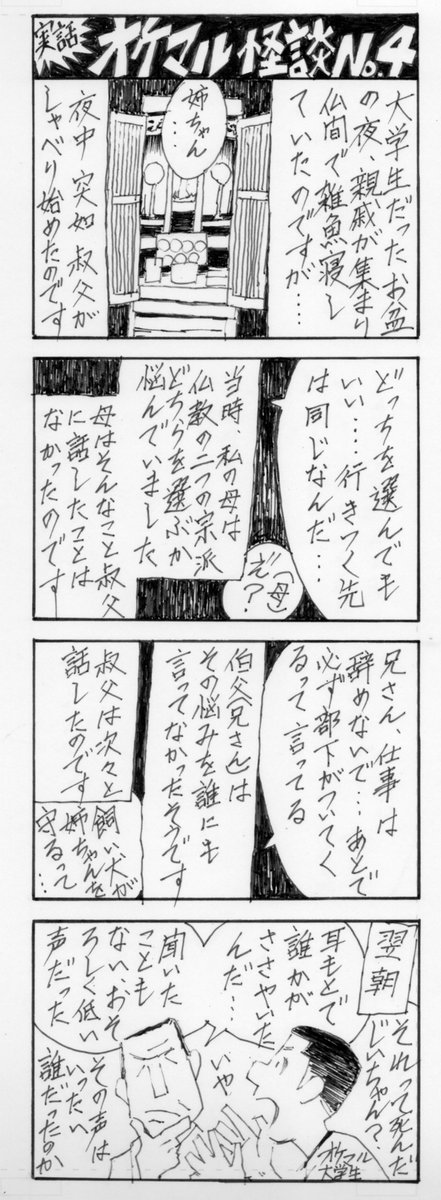 実話
オケマル怪談No.4
大学生だったお盆
の夜、親戚が集まり
仏間で雑魚寝し
ていたのですが…
姉ちゃん
…
夜中 突如 叔父が
しゃべり始めたのです
どっちを選んでも
いい…行きつく先
は同じなんだ…
(母)
え?
当時、私の母は
仏教の二つの宗派
どちらを選ぶか
悩んでいました
母はそんなこと叔父
に話したことは
なかったのです
兄さん、仕事は
辞めないで…あとで
必ず部下がついてく
るって言ってる
伯父(兄さん)は
その悩みを誰にも
言ってなかったそうです
叔父は次々と
話したのです
飼い犬が
姉ちゃんを
守るって
…
翌朝
それって死んだ
じいちゃん?
耳もとで
誰かが
ささやいた
んだ…
いや
聞いた
ことも
ない、おそ
ろしく低い
声だった
オケマル
大学生
その声は
いったい
誰だったのか